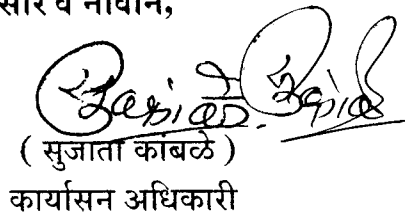 व नावाने,
( सुजाता कांबळे )
कार्यासन अधिकारी